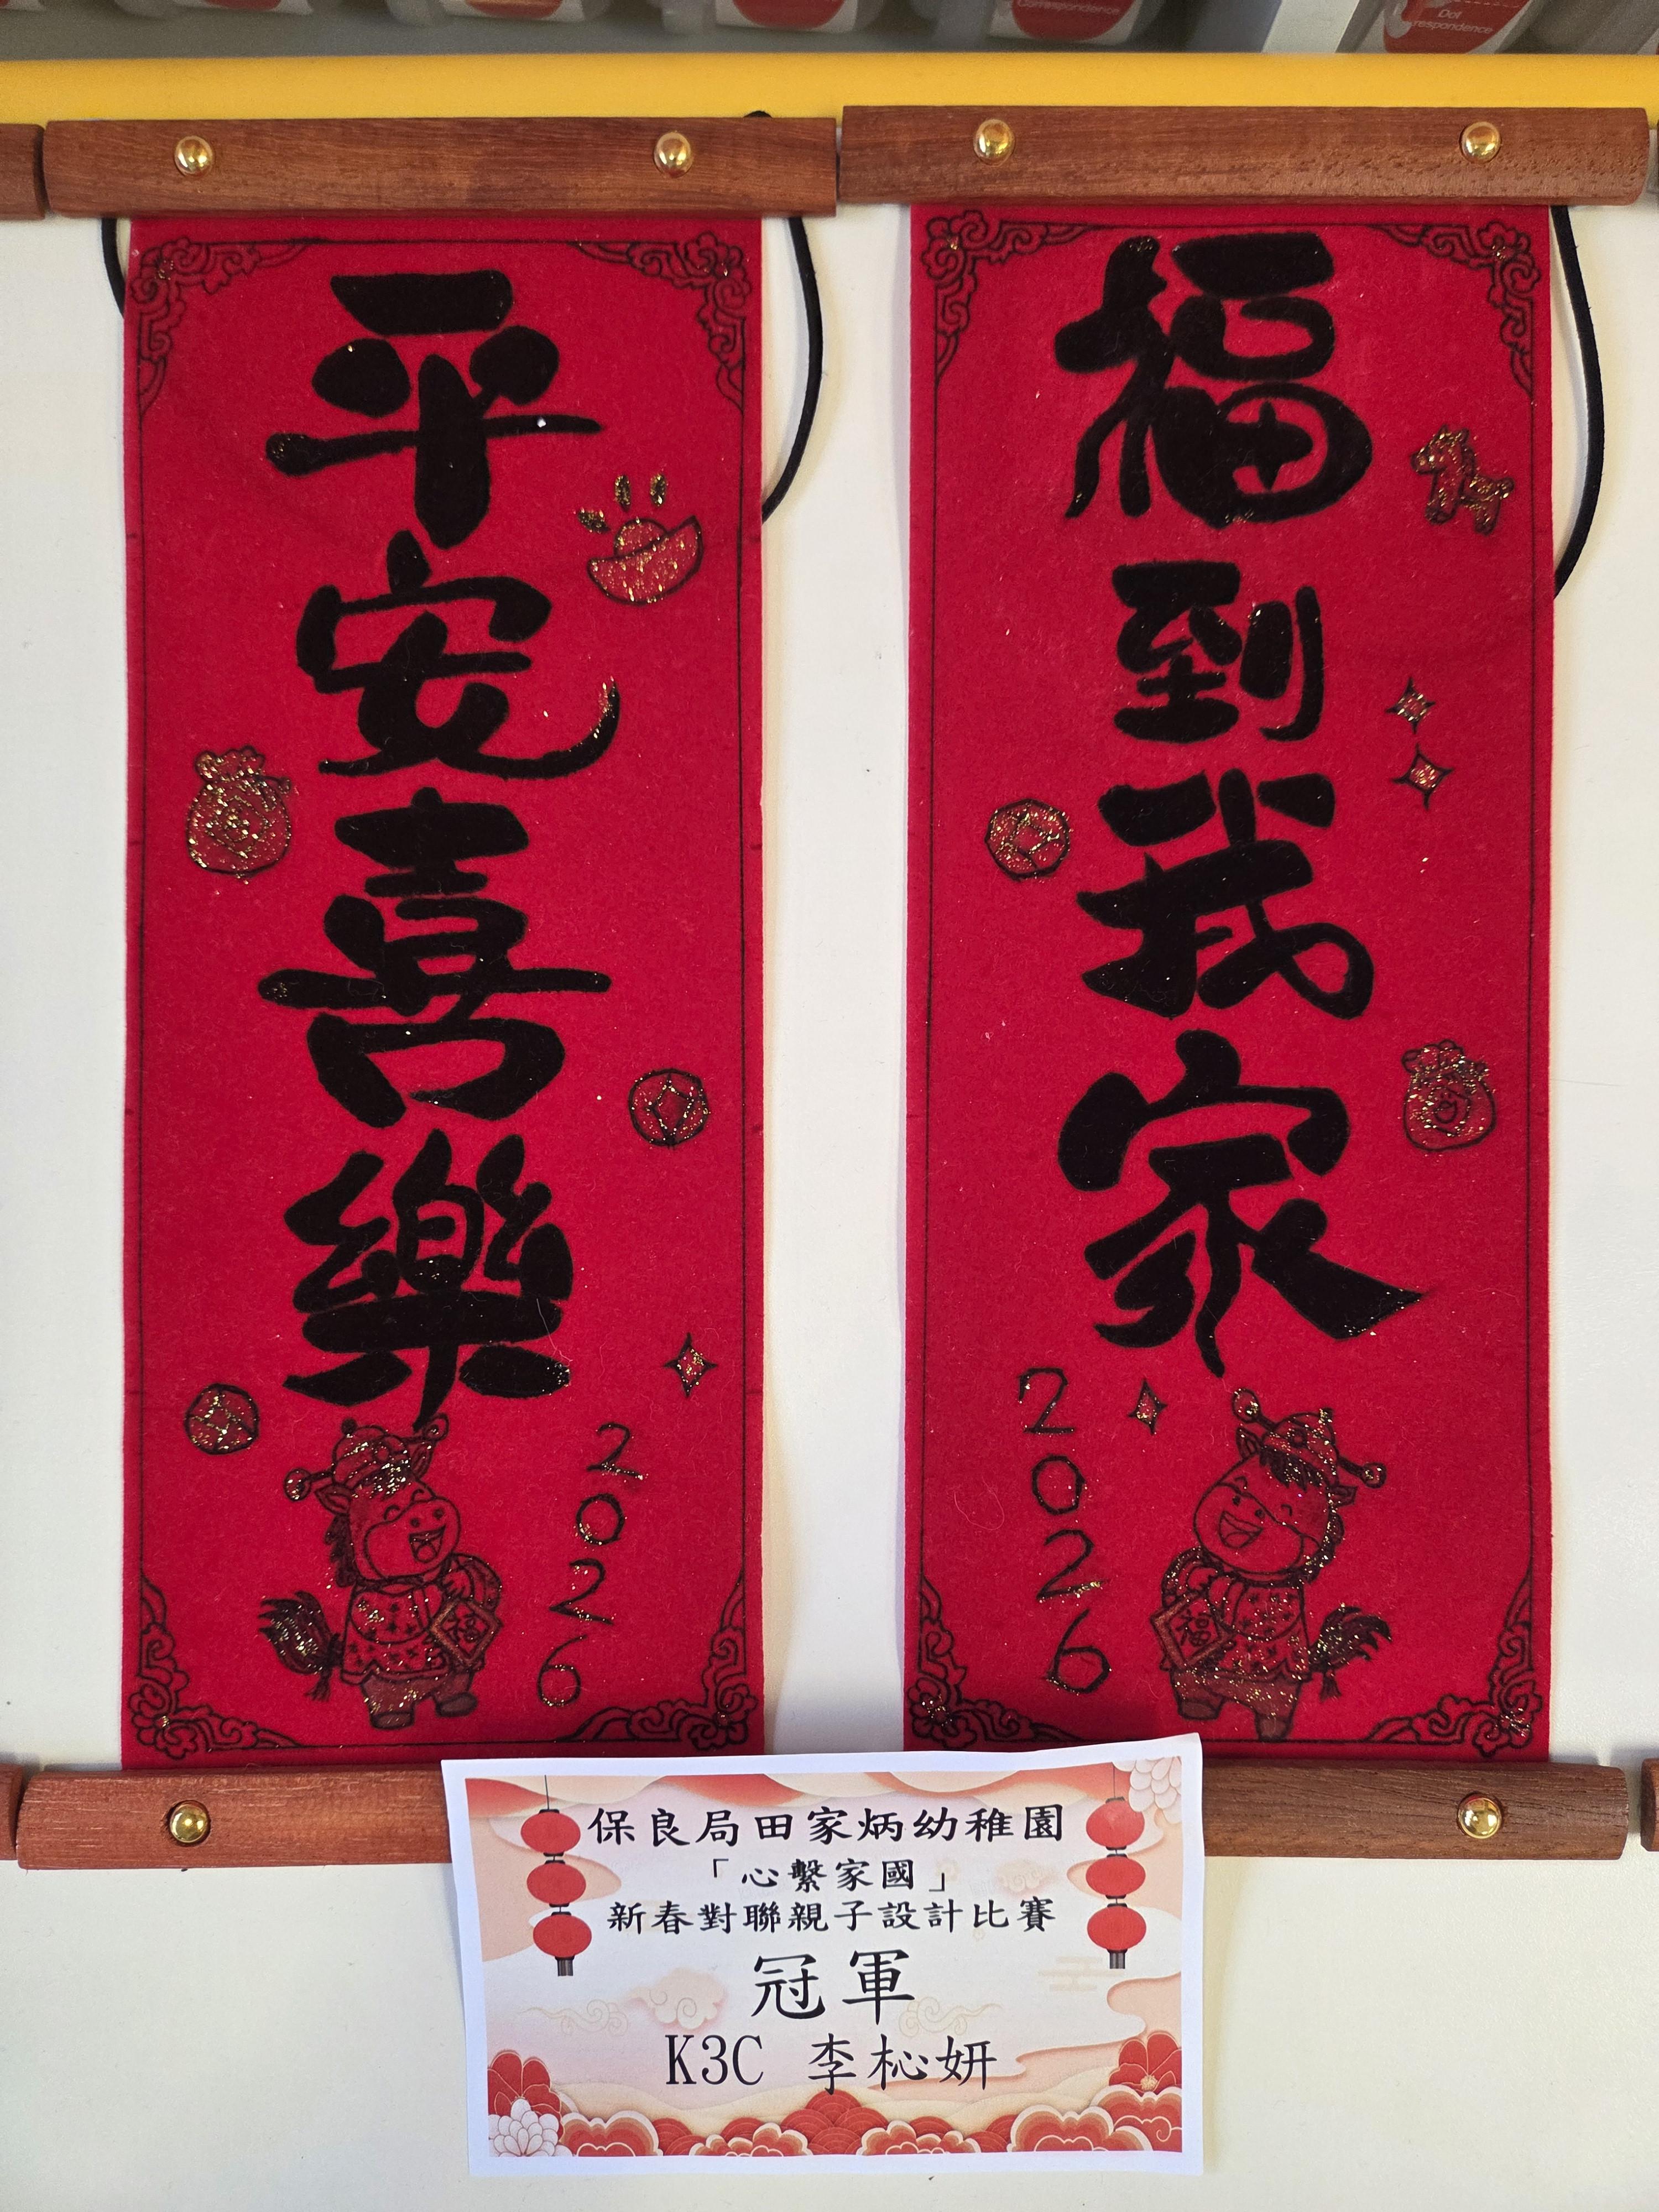 Correspondence
Dot
respondence
福到我家
2026
福
平安喜樂
2026
福
保良局田家炳幼稚園
「心繫家國」
新春對聯親子設計比賽
冠軍
K3C 李杺妍